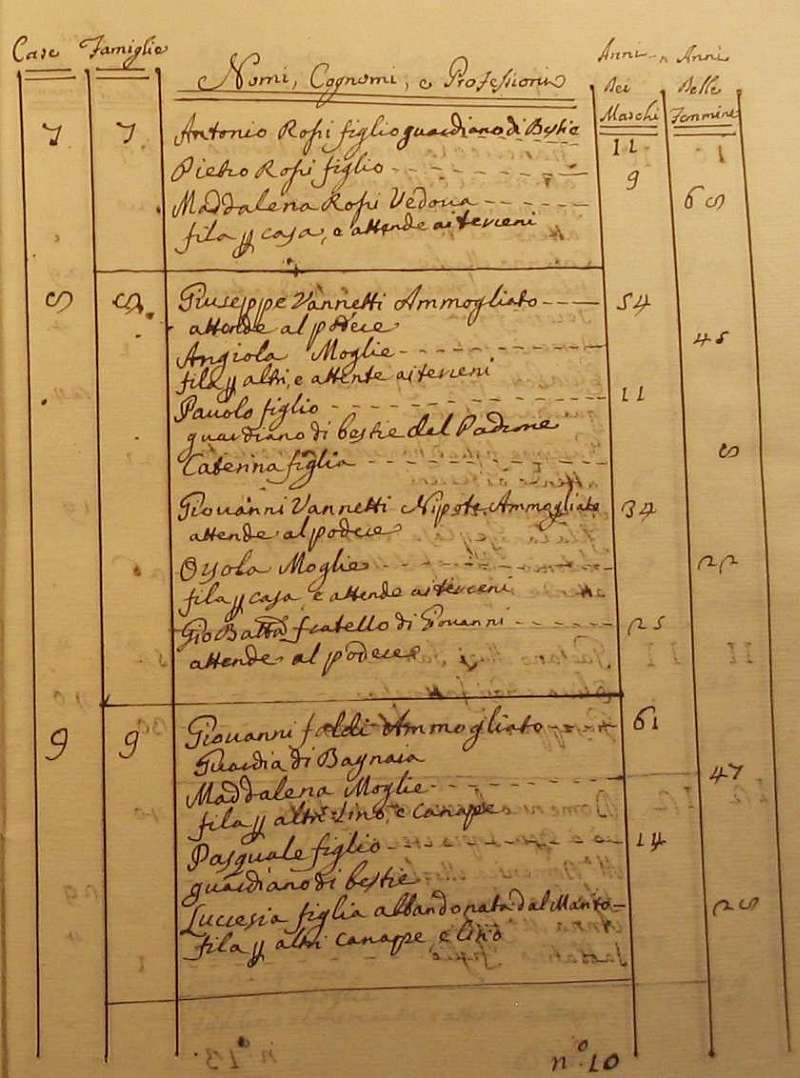 Case Famiglie Nomi, Cognomi, e Professioni Anni Dei Maschi Anni Delle Femmine
7 7 Antonio Rossi figlio guardiano di Bestie 11
Pietro Rossi figlio 9
Maddalena Rossi Vedova 68
fila p casa, e attende ai terreni
8 8 Giuseppe Vannetti Ammogliato 54
attende al podere
Angiola Moglie 45
fila p altri, e attente ai terreni
Pauolo figlio 11
guardiano di bestie del Padrone
Caterina figlia 8
Giovanni Vannetti Nipote Ammogliato 34
attende al podere
Orsola Moglie 22
fila p casa e attende ai terreni
Gio Batta fratello di Giovanni 25
attende al podere
9 9 Giovanni faldi Ammogliato 61
Guardia di Bagnaia
Maddalena Moglie 47
fila p altri Lino, e Canape
Pasquale figlio 14
guardiano di bestie
Lucresia figlia abbandonata dal Marito 28
fila p altri Canape, e lino
n.o 10